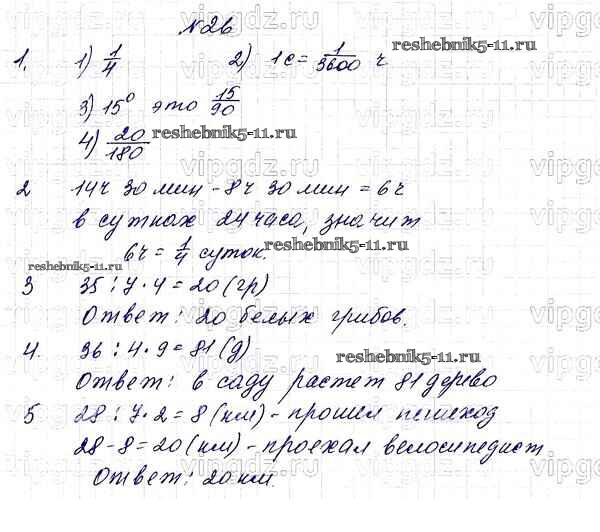 №26
1. 1) 1/4 2) 1с = 1/3600 ч
3) 15° это 15/90
4) 20/180
2 14ч 30 мин - 8ч 30 мин = 6ч
в сутках 24 часа, значит
6ч = 1/4 суток.
3 35 : 7 · 4 = 20 (гр)
Ответ: 20 белых грибов.
4. 36 : 4 · 9 = 81 (д)
Ответ: в саду растет 81 дерево
5 28 : 7 · 2 = 8 (км) - прошел пешеход
28 - 8 = 20 (км) - проехал велосипедист
Ответ: 20 км.
reshebnik5-11.ru
reshebnik5-11.ru
reshebnik5-11.ru
reshebnik5-11.ru
reshebnik5-11.ru
vipgdz.ru